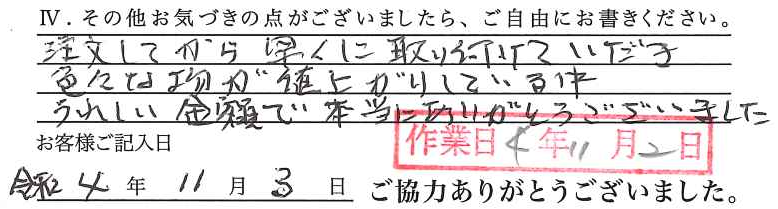 Ⅳ．その他お気づきの点がございましたら、ご自由にお書きください。
注文してから早くに取り付けていただき
色々な物が値上がりしている中
うれしい金額で本当にありがとうございました
お客様ご記入日
作業日 4年11月2日
令和 4 年 11 月 3 日 ご協力ありがとうございました。